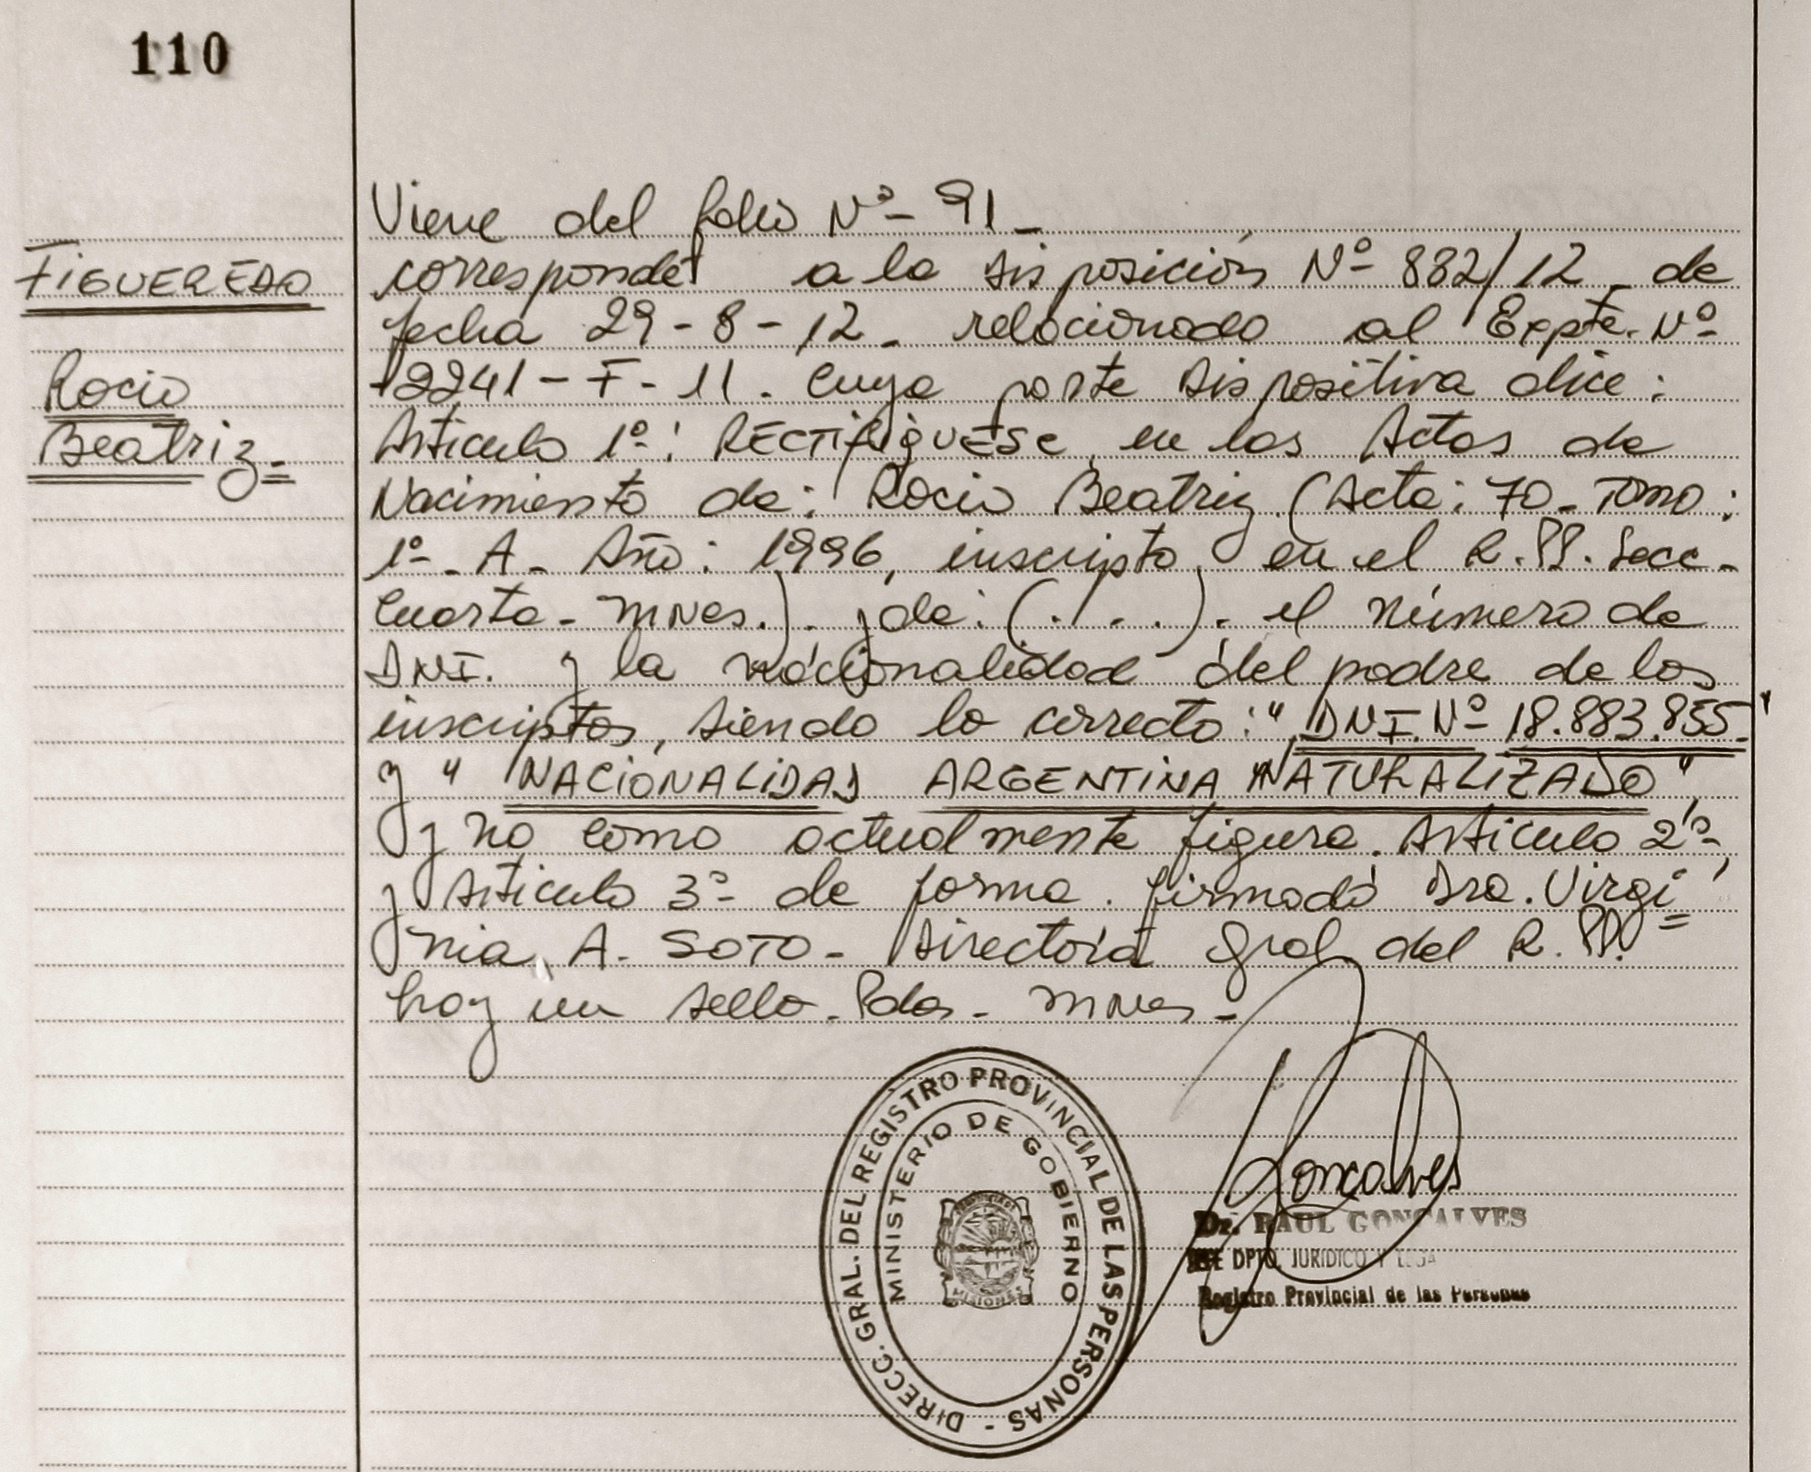 110
FIGUEREDO
Rocio
Beatriz=
Viene del folio Nº- 91_
corresponde a la disposición Nº 882/12 de
fecha 29-8-12. relacionado al Expte. Nº
2241-F-11. Cuya parte dispositiva dice:
Artículo 1º: RECTIFIQUESE en las Actas de
Nacimiento de: Rocio Beatriz (Acta: 70- Tomo:
1º-A- Año: 1996, inscripto en el R.PP. Secc-
Cuarta- mnes.). y de: (...). el número de
DNI. y la nacionalidad del padre de los
inscriptos, siendo lo correcto: " DNI. Nº 18.883.855."
y " NACIONALIDAD ARGENTINA NATURALIZADO"
y no como actualmente figura. Artículo 2º-,
y Artículo 3º- de forma. firmado Dra. Virgi=
nia A. SOTO- Directora Gral del R. PP.
hay un sello- Pdas- mnes-
DIRECC. GRAL. DEL REGISTRO PROVINCIAL DE LAS PERSONAS -
MINISTERIO DE GOBIERNO
MISIONES
Goncalves
Dr. RAUL GONCALVES
DPTO. JURIDICO Y
Registro Provincial de las Personas